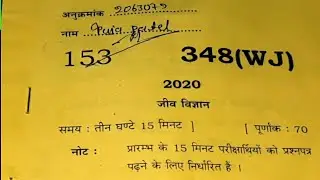 अनुक्रमांक ...2063079...
नाम ...Puja patel...
153 348(WJ)
2020
जीव विज्ञान
समय : तीन घण्टे 15 मिनट ] [ पूर्णांक : 70
नोट : प्रारम्भ के 15 मिनट परीक्षार्थियों को प्रश्नपत्र
पढ़ने के लिए निर्धारित हैं ।